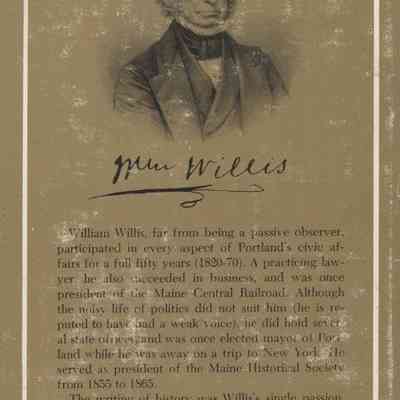 Wm Willis
William Willis, far from being a passive observer,
participated in every aspect of Portland's civic af-
fairs for a full fifty years (1820-70). A practicing law-
yer he also succeeded in business, and was once
president of the Maine Central Railroad. Although
the noisy life of politics did not suit him (he is re-
puted to have had a weak voice), he did hold sever-
al state offices and was once elected mayor of Port-
land while he was away on a trip to New York. He
served as president of the Maine Historical Society
from 1855 to 1865.
The writing of history was Willis's single passion